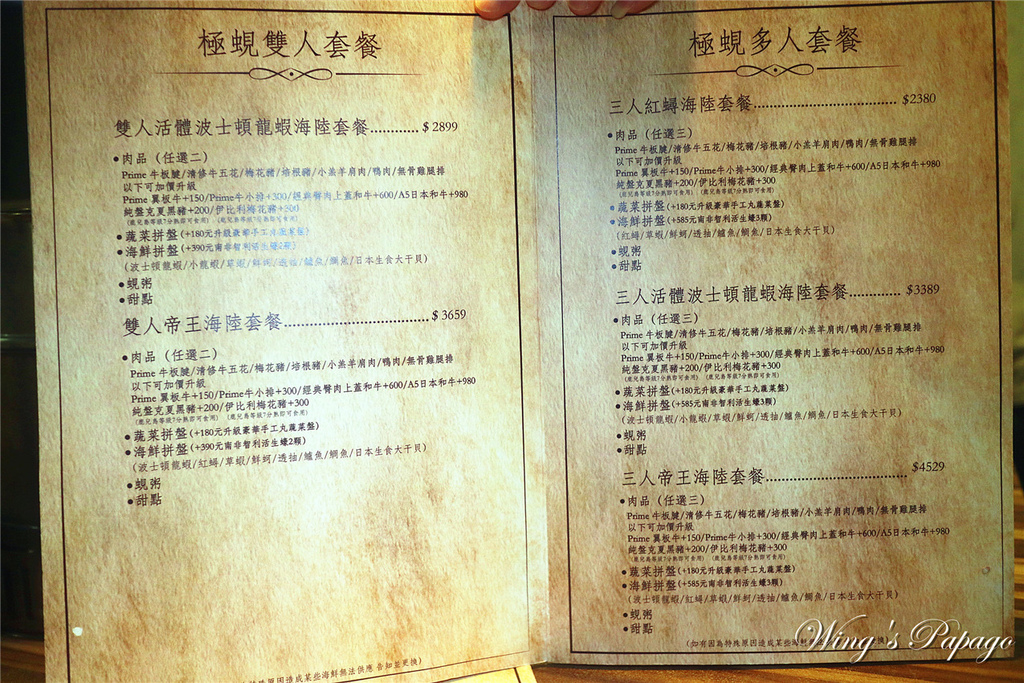 極蜆雙人套餐
雙人活體波士頓龍蝦海陸套餐............ $ 2899
●肉品 (任選二)
Prime 牛板腱/清修牛五花/梅花豬/培根豬/小羔羊肩肉/鴨肉/無骨雞腿排
以下可加價升級
Prime 翼板牛+150/Prime牛小排+300/經典臀肉上蓋和牛+600/A5日本和牛+980
純盤克夏黑豬+200/伊比利梅花豬+300
(鹿兒島等級7分熟即可食用) (鹿兒島等級7分熟即可食用)
●蔬菜拼盤(+180元升級豪華手工丸蔬菜盤)
●海鮮拼盤(+390元南非智利活生蠔2顆)
(波士頓龍蝦/小龍蝦/草蝦/鮮蚵/透抽/鱸魚/鯛魚/日本生食大干貝)
●蜆粥
●甜點
雙人帝王海陸套餐.................................... $ 3659
●肉品 (任選二)
Prime 牛板腱/清修牛五花/梅花豬/培根豬/小羔羊肩肉/鴨肉/無骨雞腿排
以下可加價升級
Prime 翼板牛+150/Prime牛小排+300/經典臀肉上蓋和牛+600/A5日本和牛+980
純盤克夏黑豬+200/伊比利梅花豬+300
(鹿兒島等級7分熟即可食用) (鹿兒島等級7分熟即可食用)
●蔬菜拼盤(+180元升級豪華手工丸蔬菜盤)
●海鮮拼盤(+390元南非智利活生蠔2顆)
(波士頓龍蝦/紅蟳/草蝦/鮮蚵/透抽/鱸魚/鯛魚/日本生食大干貝)
●蜆粥
●甜點
原因造成某些海鮮無法供應 告知並更換)
極蜆多人套餐
三人紅蟳海陸套餐.................................... $2380
●肉品 (任選三)
Prime 牛板腱/清修牛五花/梅花豬/培根豬/小羔羊肩肉/鴨肉/無骨雞腿排
以下可加價升級
Prime 翼板牛+150/Prime牛小排+300/經典臀肉上蓋和牛+600/A5日本和牛+980
純盤克夏黑豬+200/伊比利梅花豬+300
(鹿兒島等級7分熟即可食用) (鹿兒島等級7分熟即可食用)
●蔬菜拼盤(+180元升級豪華手工丸蔬菜盤)
●海鮮拼盤(+585元南非智利活生蠔3顆)
(紅蟳/草蝦/鮮蚵/透抽/鱸魚/鯛魚/日本生食大干貝)
●蜆粥
●甜點
三人活體波士頓龍蝦海陸套餐............. $3389
●肉品 (任選三)
Prime 牛板腱/清修牛五花/梅花豬/培根豬/小羔羊肩肉/鴨肉/無骨雞腿排
以下可加價升級
Prime 翼板牛+150/Prime牛小排+300/經典臀肉上蓋和牛+600/A5日本和牛+980
純盤克夏黑豬+200/伊比利梅花豬+300
(鹿兒島等級7分熟即可食用) (鹿兒島等級7分熟即可食用)
●蔬菜拼盤(+180元升級豪華手工丸蔬菜盤)
●海鮮拼盤(+585元南非智利活生蠔3顆)
(波士頓龍蝦/小龍蝦/草蝦/鮮蚵/透抽/鱸魚/鯛魚/日本生食大干貝)
●蜆粥
●甜點
三人帝王海陸套餐.................................... $4529
●肉品 (任選三)
Prime 牛板腱/清修牛五花/梅花豬/培根豬/小羔羊肩肉/鴨肉/無骨雞腿排
以下可加價升級
Prime 翼板牛+150/Prime牛小排+300/經典臀肉上蓋和牛+600/A5日本和牛+980
純盤克夏黑豬+200/伊比利梅花豬+300
(鹿兒島等級7分熟即可食用) (鹿兒島等級7分熟即可食用)
●蔬菜拼盤(+180元升級豪華手工丸蔬菜盤)
●海鮮拼盤(+585元南非智利活生蠔3顆)
(波士頓龍蝦/紅蟳/草蝦/鮮蚵/透抽/鱸魚/鯛魚/日本生食大干貝)
●蜆粥
●甜點
(如有因為特殊原因造成某些海鮮無 換)
Wing's Papago